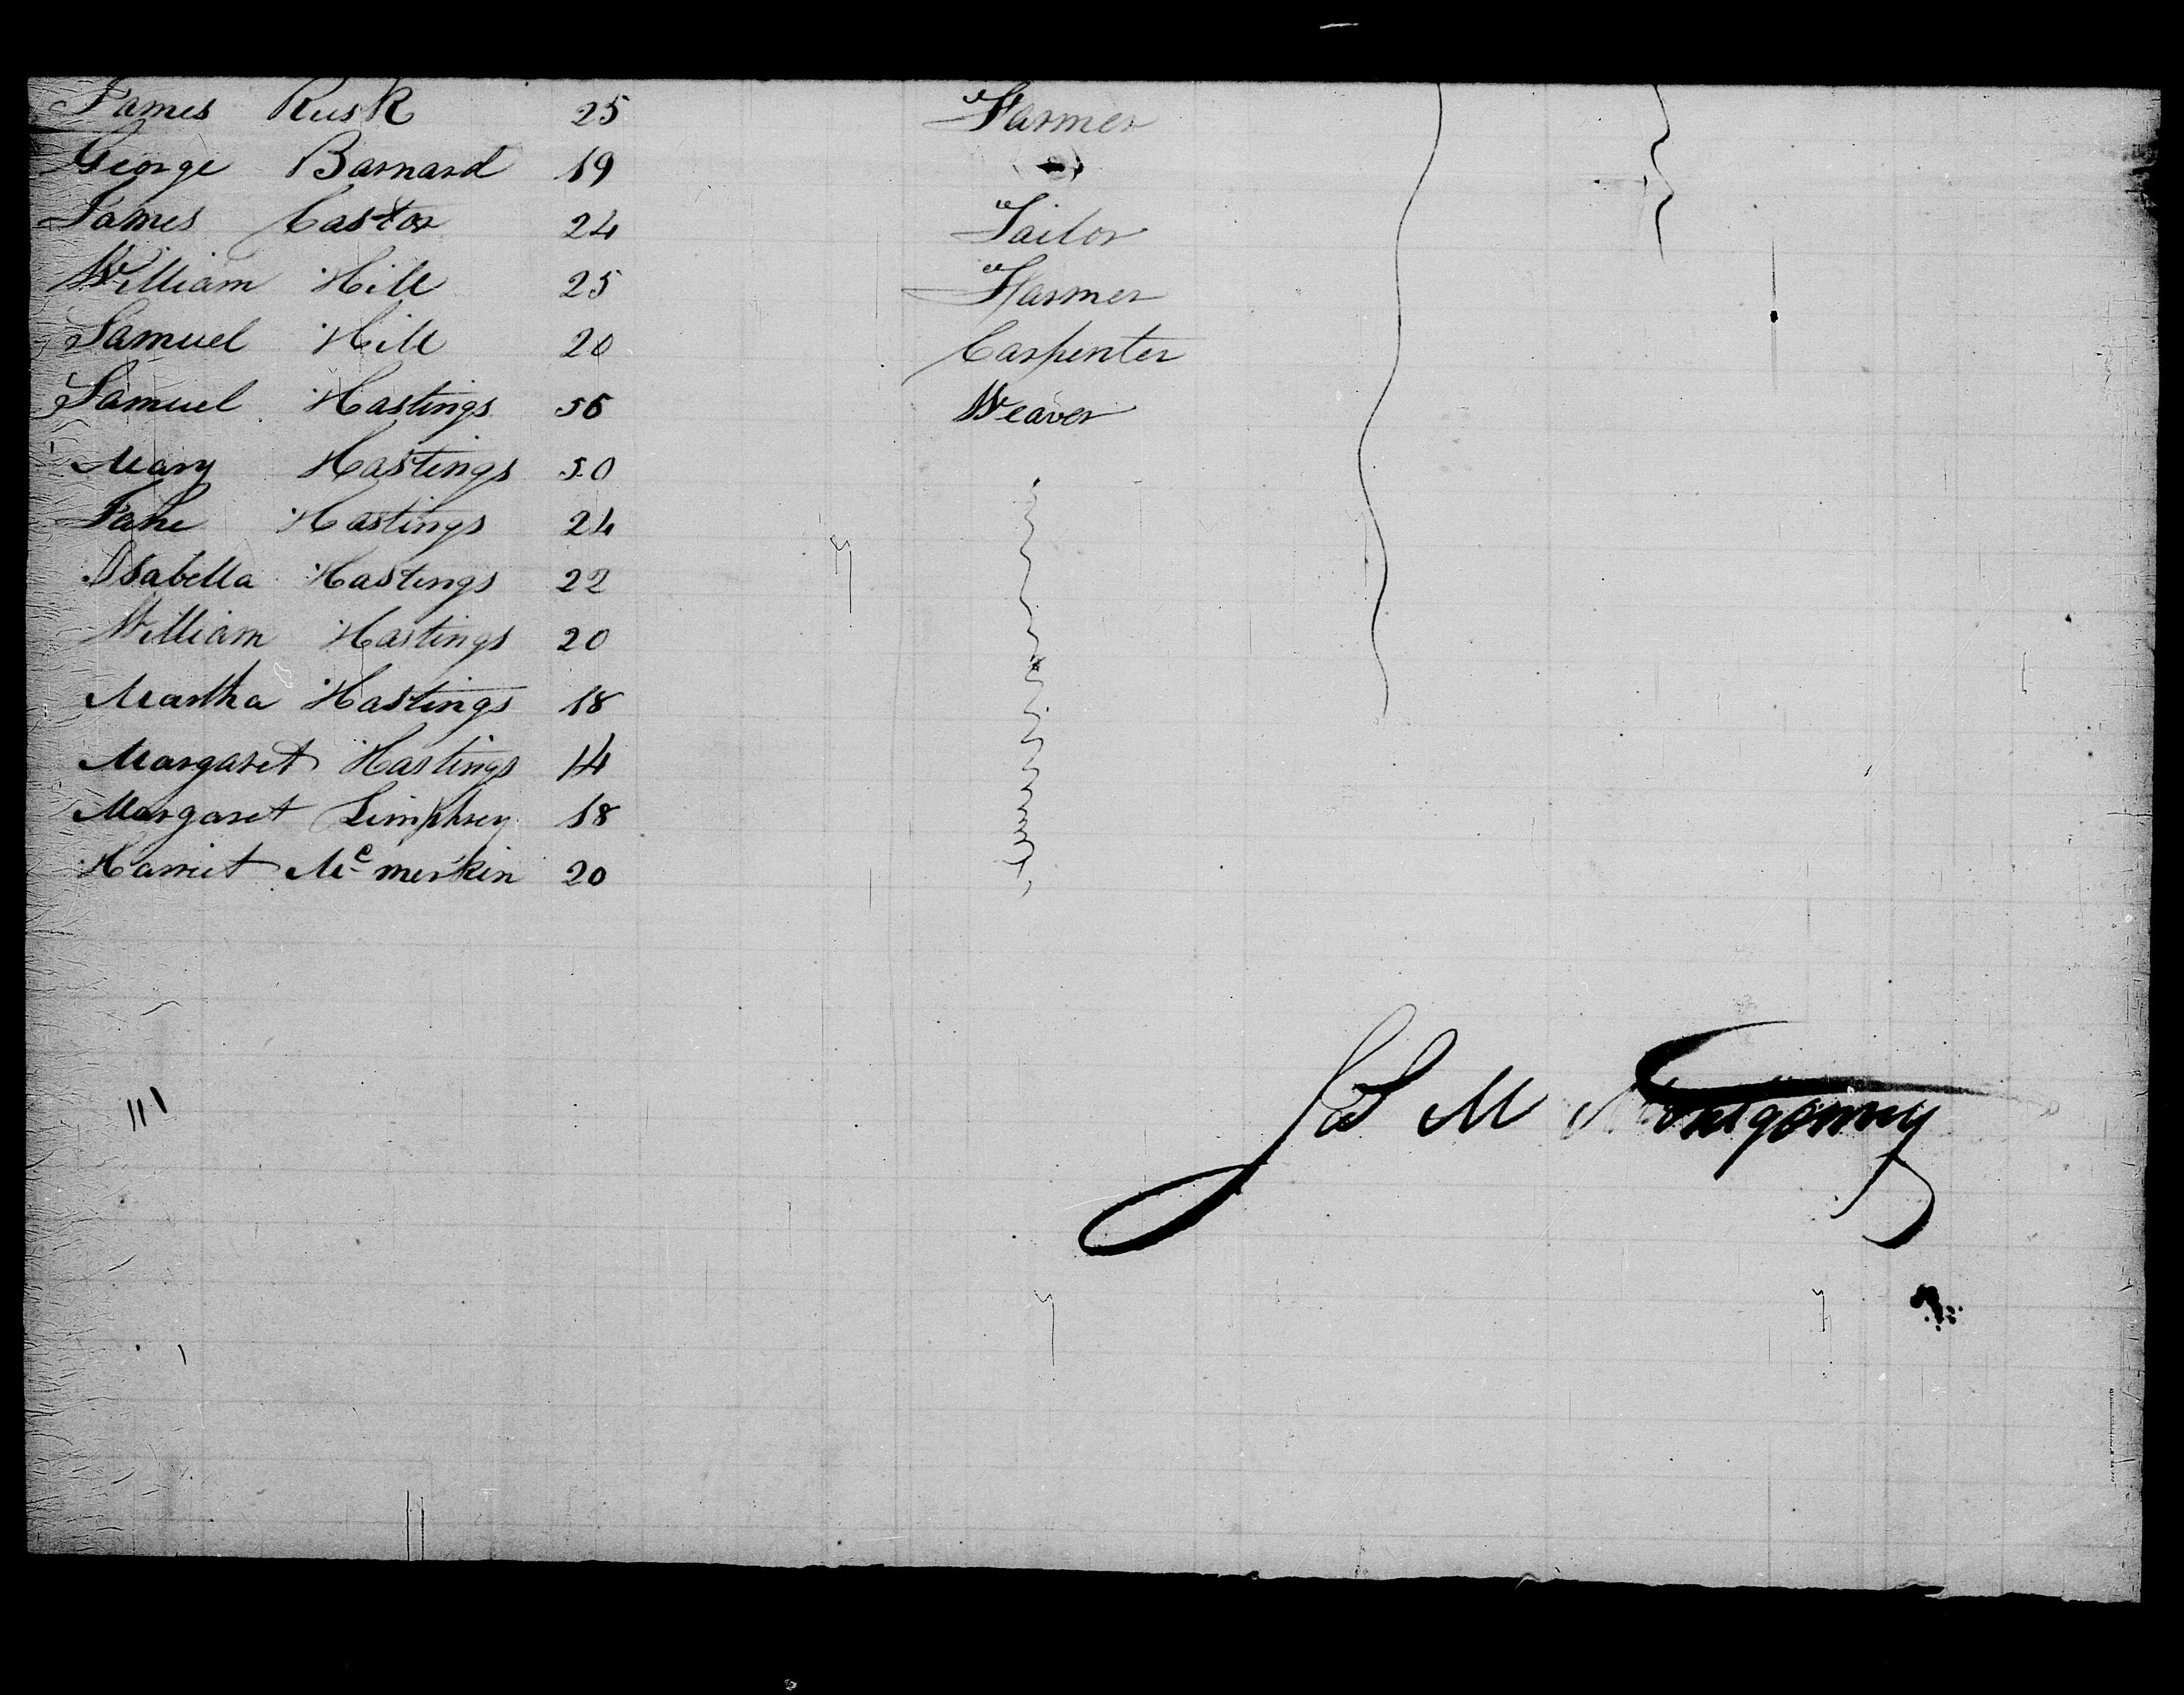 James Rusk 25 Farmer
George Barnard 19
James Castor 24 Tailor
William Hill 25 Farmer
Samuel Hill 20 Carpenter
Samuel Hastings 56 Weaver
Mary Hastings 50
Jane Hastings 24
Isabella Hastings 22
William Hastings 20
Martha Hastings 18
Margaret Hastings 14
Margaret Limphrey 18
Harriet Mc merkin 20
Jas M Montgomery